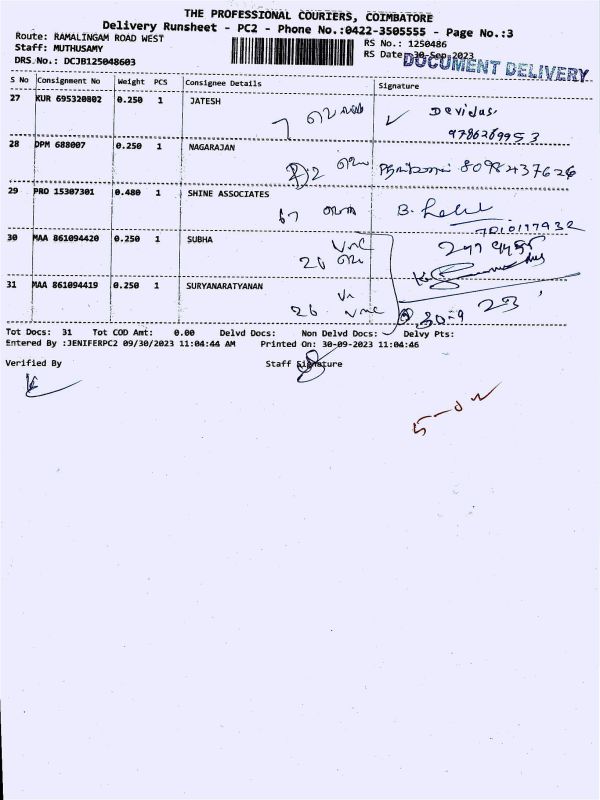 THE PROFESSIONAL COURIERS, COIMBATORE
Delivery Runsheet - PC2 - Phone No.:0422-3505555 - Page No.:3
Route: RAMALINGAM ROAD WEST
RS No.: 1250486
Staff: MUTHUSAMY
RS Date: 30-Sep-2023
DOCUMENT DELIVERY
DRS No.: DCJB125048603
S No Consignment No Weight PCS Consignee Details Signature
27 KUR 695320802 0.250 1 JATESH
Devidas.
9786269953
28 DPM 688007 0.250 1 NAGARAJAN
8098437626
29 PRO 15307301 0.480 1 SHINE ASSOCIATES
67
7010197932
30 MAA 861094420 0.250 1 SUBHA
26
31 MAA 861094419 0.250 1 SURYANARATYANAN
26
30-9 23
Tot Docs: 31 Tot COD Amt: 0.00 Delvd Docs: Non Delvd Docs: Delvy Pts:
Entered By :JENIFERPC2 09/30/2023 11:04:44 AM Printed On: 30-09-2023 11:04:46
Verified By Staff Signature